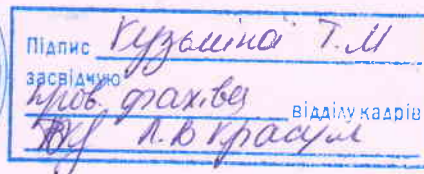 Підпис Кузьміної Т.М
засвідчую
пров. фахівец
відділу кадрів
Л.В Красул